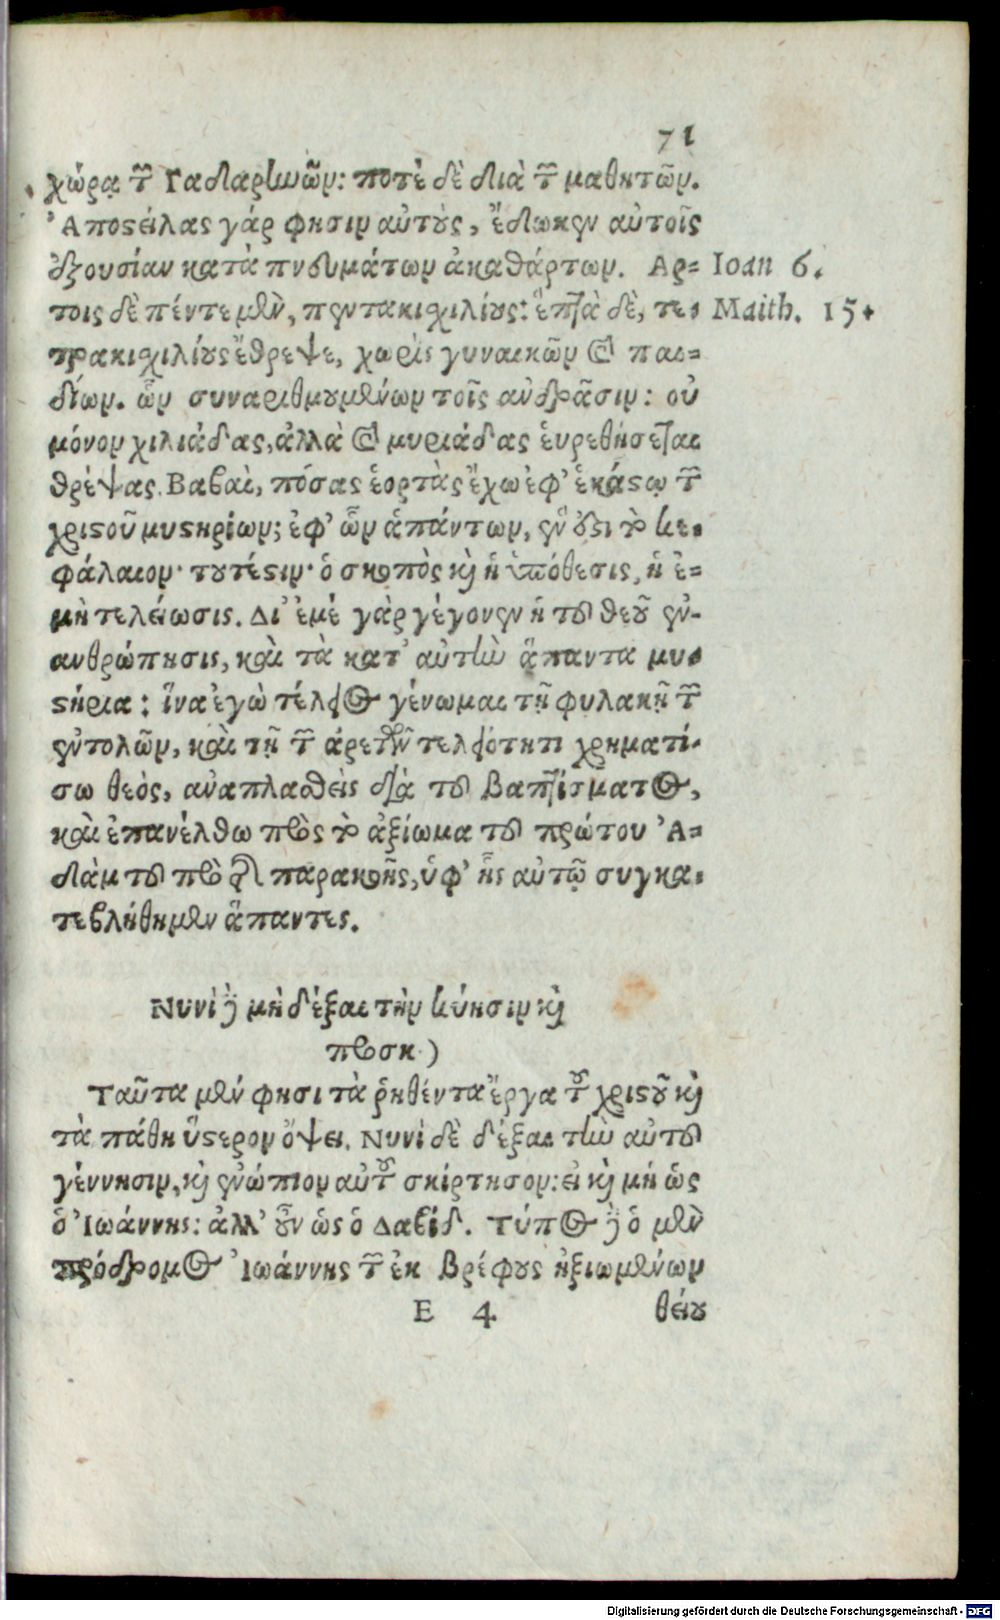 71
χώρᾳ τῶν Γαδαρηνῶν: ποτὲ δὲ διὰ τῶν μαθητῶν.
Ἀποστείλας γάρ φησιν αὐτοὺς, ἔδωκεν αὐτοῖς
ἐξουσίαν κατὰ πνευμάτων ἀκαθάρτων. Ἄρ-
τοις δὲ πέντε μὲν, πεντακιχιλίους: ἑπτὰ δὲ, τε-
τρακιχιλίους ἔθρεψε, χωρὶς γυναικῶν καὶ παι-
δίων. ὧν συναριθμουμένων τοῖς ἀνδράσιν: οὐ
μόνον χιλιάδας, ἀλλὰ καὶ μυριάδας εὑρεθήσεται
θρέψας. Βαβαὶ, πόσας ἑορτὰς ἔχω ἐφ' ἑκάστῳ τῶν
χριστοῦ μυστηρίων; ἐφ' ὧν ἁπάντων, ἕν ἐστι τὸ κε-
φάλαιον· τουτέστιν· ὁ σκοπὸς καὶ ἡ ὑπόθεσις, ἡ ἐ-
μὴ τελείωσις. Δι' ἐμέ γὰρ γέγονεν ἡ τοῦ θεοῦ ἐν-
ανθρώπησις, καὶ τὰ κατ' αὐτὴν ἅπαντα μυ-
στήρια: ἵνα ἐγὼ τέλειος γένωμαι τῇ φυλακῇ τῶν
ἐντολῶν, καὶ τῇ τῶν ἀρετῶν τελειότητι χρηματί-
σω θεὸς, ἀναπλασθεὶς διὰ τοῦ βαπτίσματος,
καὶ ἐπανέλθω πρὸς τὸ ἀξίωμα τοῦ πρώτου Ἀ-
δὰμ τοῦ πρὸ τῆς παρακοῆς, ὑφ' ἧς αὐτῷ συγκα-
τεβλήθημεν ἅπαντες.
Νυνὶ δὲ μὴ δέξαι τὴν κύησιν καὶ
προσκ)
Ταῦτα μέν φησι τὰ ῥηθέντα ἔργα τοῦ χριστοῦ καὶ
τὰ πάθη ὕστερον ὄψει. Νυνὶ δὲ δέξαι τὴν αὐτοῦ
γέννησιν, καὶ ἐνώπιον αὐτοῦ σκίρτησον: εἰ καὶ μή ὡς
ὁ Ἰωάννης: ἀλλ' οὖν ὡς ὁ Δαβίδ. Τύπος δὲ ὁ μὲν
πρόδρομος Ἰωάννης τῶν ἐκ βρέφους ἠξιωμένων
E 4 θείου
Ioan 6.
Matth. 15.
Digitalisierung gefördert durch die Deutsche Forschungsgemeinschaft - DFG